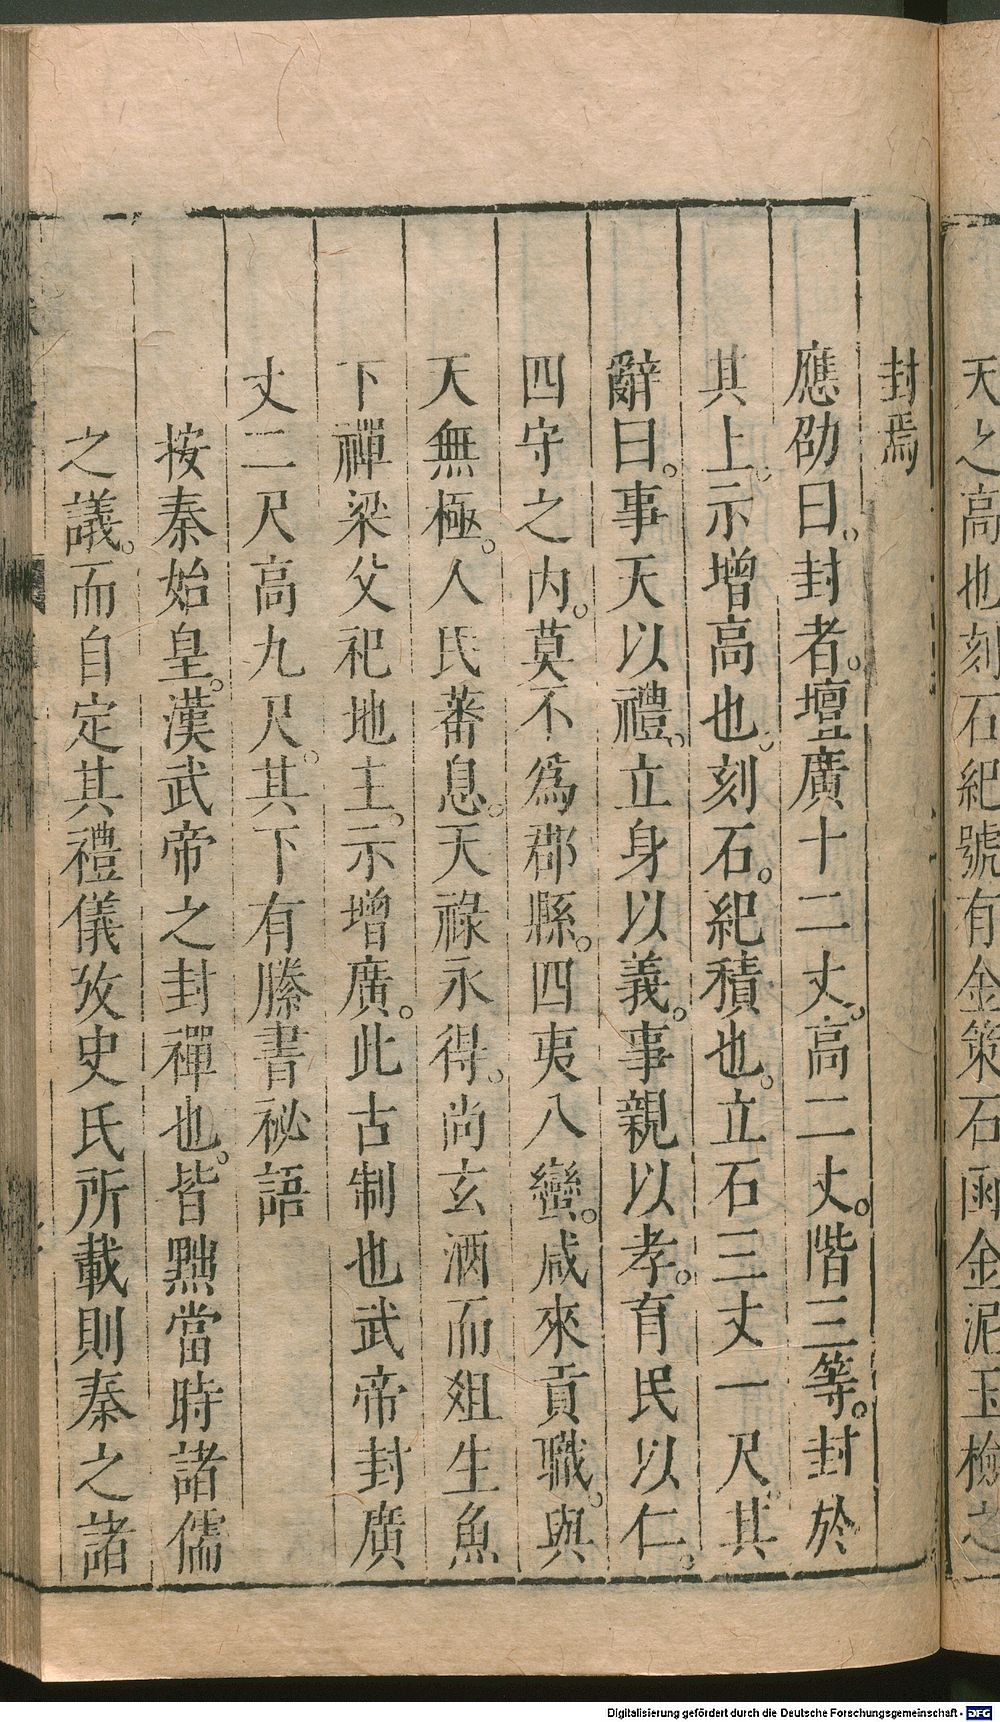 天之高也刻石紀號有金策石函金泥玉檢之
封焉
應劭曰。封者。壇廣十二丈。高二丈。階三等。封於
其上。示增高也。刻石。紀積也。立石三丈一尺。其
辭曰。事天以禮。立身以義。事親以孝。育民以仁。
四守之內。莫不爲郡縣。四夷八蠻。咸來貢職。與
天無極。人民蕃息。天祿永得。尚玄酒而俎生魚
下禪梁父祀地主。示增廣。此古制也武帝封廣
丈二尺高九尺。其下有縢書祕語
按秦始皇。漢武帝之封禪也。皆黜當時諸儒
之議。而自定其禮儀攷史氏所載則秦之諸
Digitalisierung gefördert durch die Deutsche Forschungsgemeinschaft - DFG